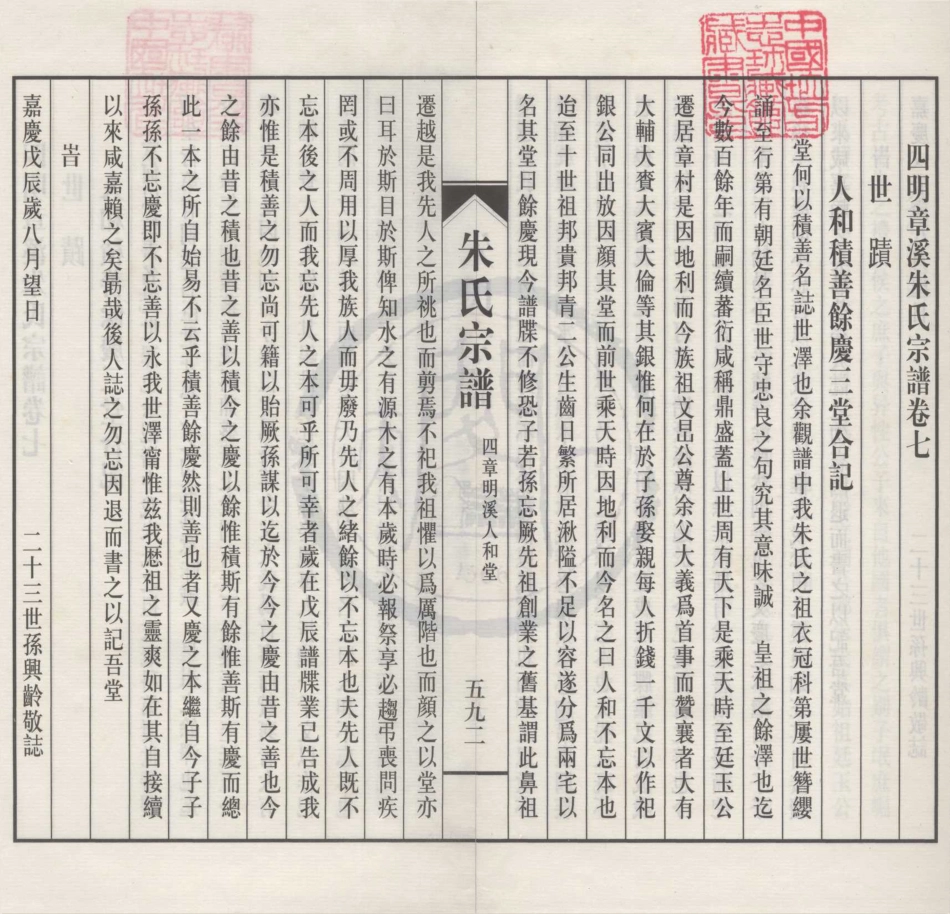 四明章溪朱氏宗譜卷七
世蹟
人和積善餘慶三堂合記
堂何以積善名誌世澤也余觀譜中我朱氏之祖衣冠科第屢世簪纓
誦至行第有朝廷名臣世守忠良之句究其意味誠　皇祖之餘澤也迄
今數百餘年而嗣續蕃衍咸稱鼎盛蓋上世周有天下是乘天時至廷玉公
遷居章村是因地利而今族祖文昷公尊余父大義爲首事而贊襄者大有
大輔大賚大賓大倫等其銀惟何在於子孫娶親每人折錢一千文以作祀
銀公同出放因顔其堂而前世乘天時因地利而今名之曰人和不忘本也
迨至十世祖邦貴邦青二公生齒日繁所居湫隘不足以容遂分爲兩宅以
名其堂曰餘慶現今譜牒不修恐子若孫忘厥先祖創業之舊基謂此鼻祖
朱氏宗譜
四章明溪人和堂
五九二
遷越是我先人之所祧也而剪焉不祀我祖懼以爲厲階也而顔之以堂亦
曰耳於斯目於斯俾知水之有源木之有本歲時必報祭享必趨弔喪問疾
罔或不周用以厚我族人而毋廢乃先人之緒餘以不忘本也夫先人既不
忘本後之人而我忘先人之本可乎所可幸者歲在戊辰譜牒業已告成我
亦惟是積善之勿忘尚可籍以貽厥孫謀以迄於今今之慶由昔之善也今
之餘由昔之積也昔之善以積今之慶以餘惟積斯有餘惟善斯有慶而總
此一本之所自始易不云乎積善餘慶然則善也者又慶之本繼自今子子
孫孫不忘慶即不忘善以永我世澤甯惟兹我厯祖之靈爽如在其自接續
以來咸嘉賴之矣勗哉後人誌之勿忘因退而書之以記吾堂
旹
嘉慶戊辰歲八月望日　二十三世孫興齡敬誌